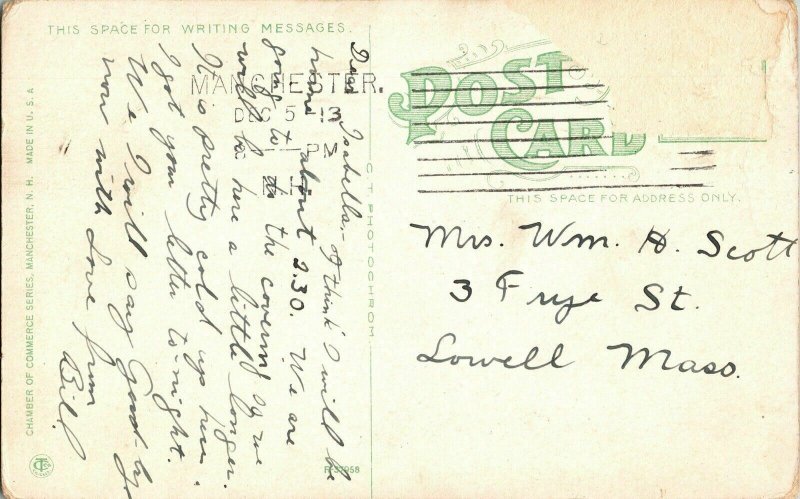 THIS SPACE FOR WRITING MESSAGES.
Dear Isabella,- I think I will be
home about 2.30. We are
going to the covering as we
will be here a little longer.
It is pretty cold up here.
I got your letter to-night.
We I will say Good-by
now with Love from
Bill
MANCHESTER.
DEC 5 -13
PM
N.H.
POST
CARD
THIS SPACE FOR ADDRESS ONLY.
Mrs. Wm. H. Scott
3 Frye St.
Lowell Mass.
C T PHOTOCHROM
R-37958
CHAMBER OF COMMERCE SERIES, MANCHESTER, N. H. MADE IN U. S. A